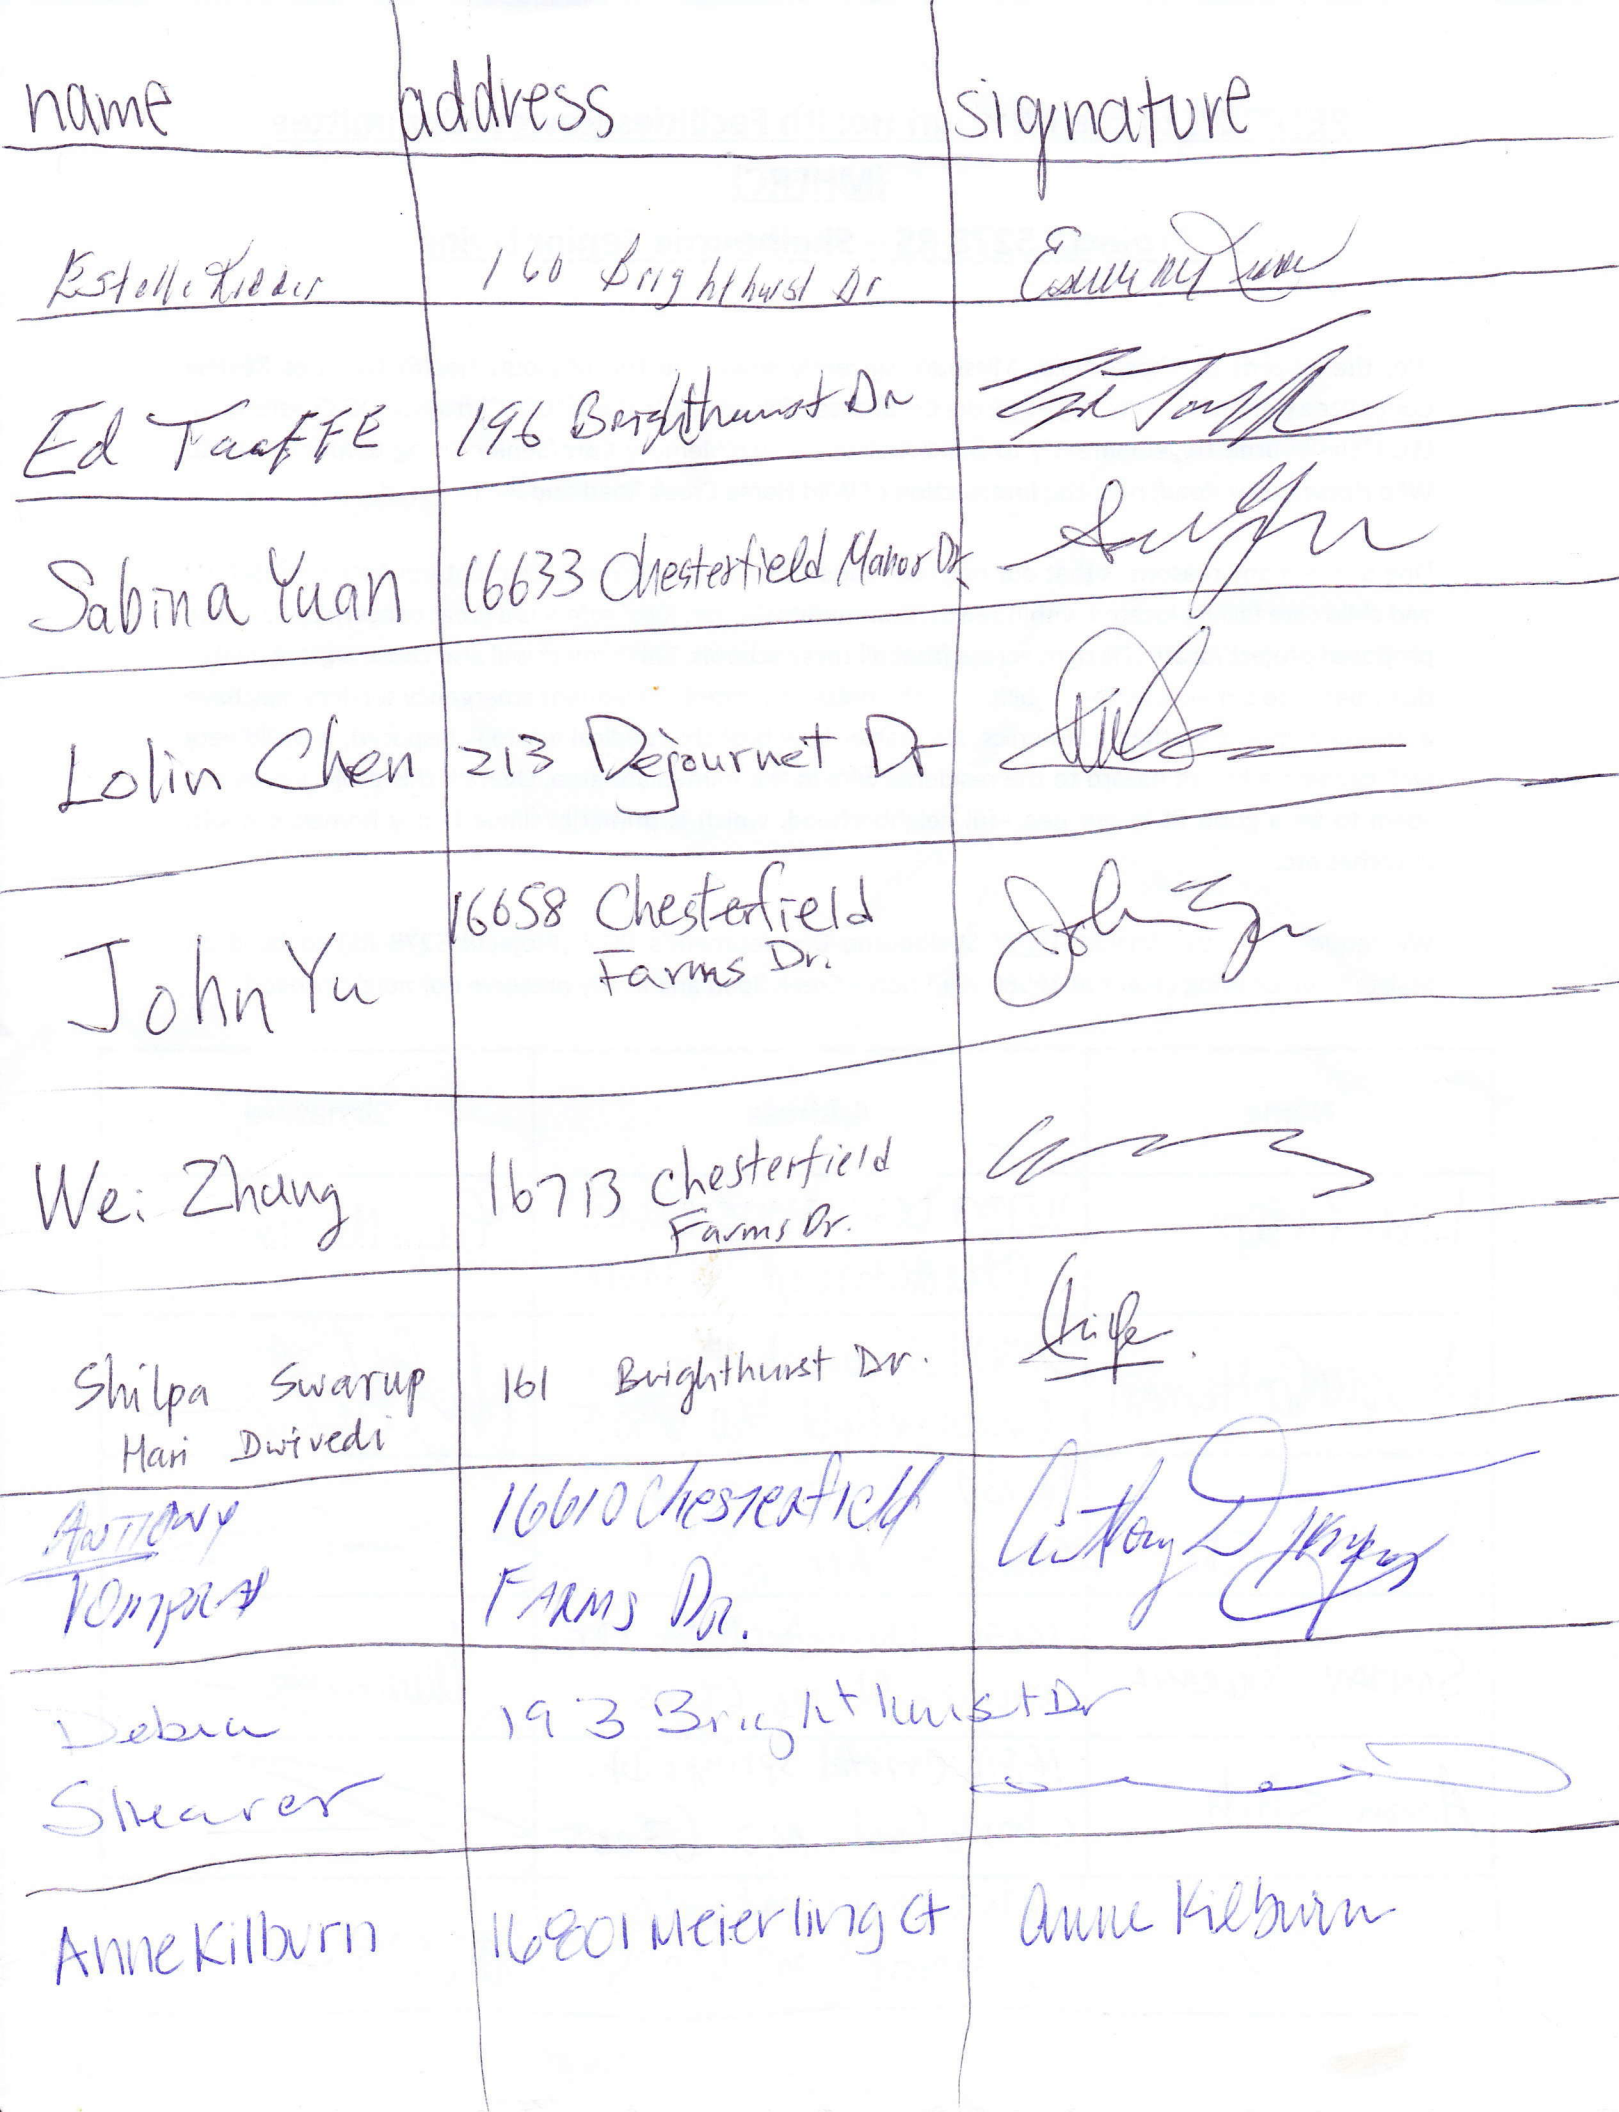 name address signature
Estelle Kidder 160 Brighthurst Dr
Ed TaaFFE 196 Brighthurst Dr
Sabina Yuan 16633 Chesterfield Manor Dr
Lolin Chen 213 Dejournet Dr
John Yu 16658 Chesterfield
Farms Dr.
Wei Zhang 16713 Chesterfield
Farms Dr.
Shilpa Swarup 161 Brighthurst Dr.
Hari Dwivedi
ANTHONY 16610 Chesterfield
FARMS DR.
Debra 193 Brighthurst Dr
Shearer
Anne Kilburn 16801 Meierling Ct Anne Kilburn